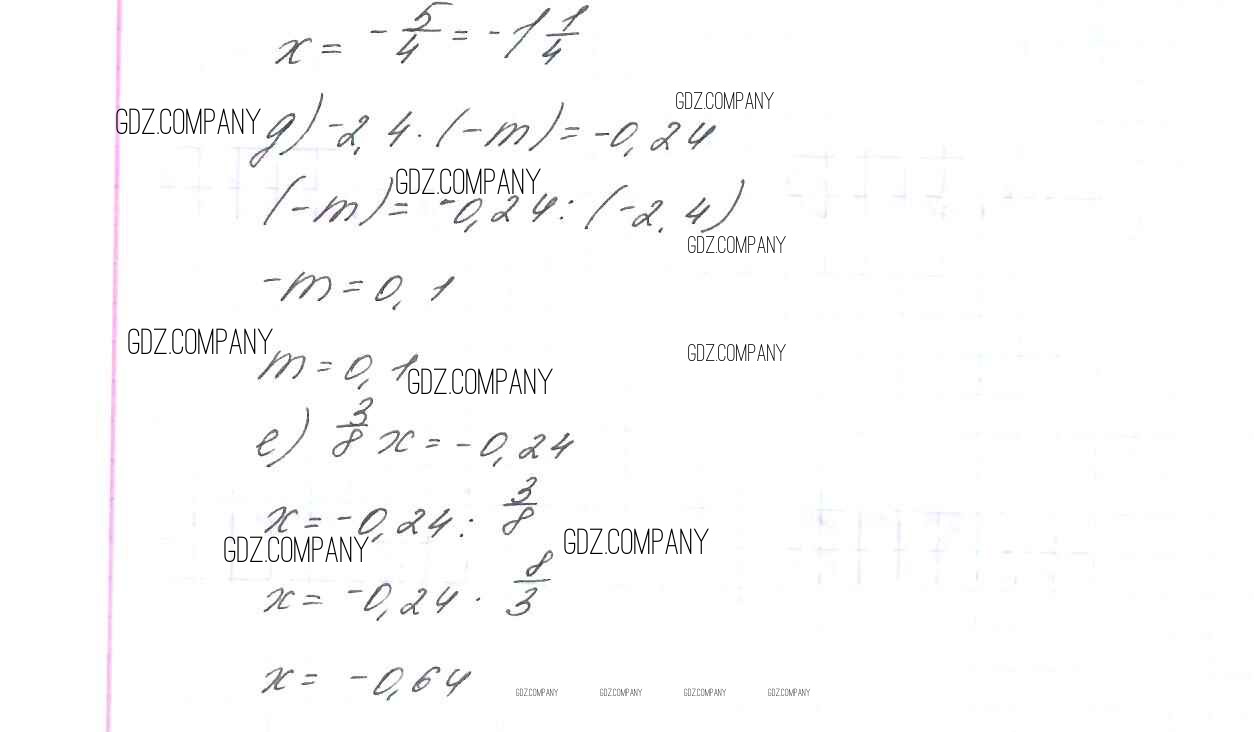 x = -5/4 = -1 1/4
GDZ.COMPANY
GDZ.COMPANY д) -2,4 · (-m) = -0,24
GDZ.COMPANY
(-m) = -0,24 : (-2,4)
GDZ.COMPANY
-m = 0,1
GDZ.COMPANY
GDZ.COMPANY
m = 0,1
GDZ.COMPANY
е) 3/8 x = -0,24
x = -0,24 : 3/8
GDZ.COMPANY
GDZ.COMPANY
x = -0,24 · 8/3
x = -0,64
GDZ.COMPANY GDZ.COMPANY GDZ.COMPANY GDZ.COMPANY